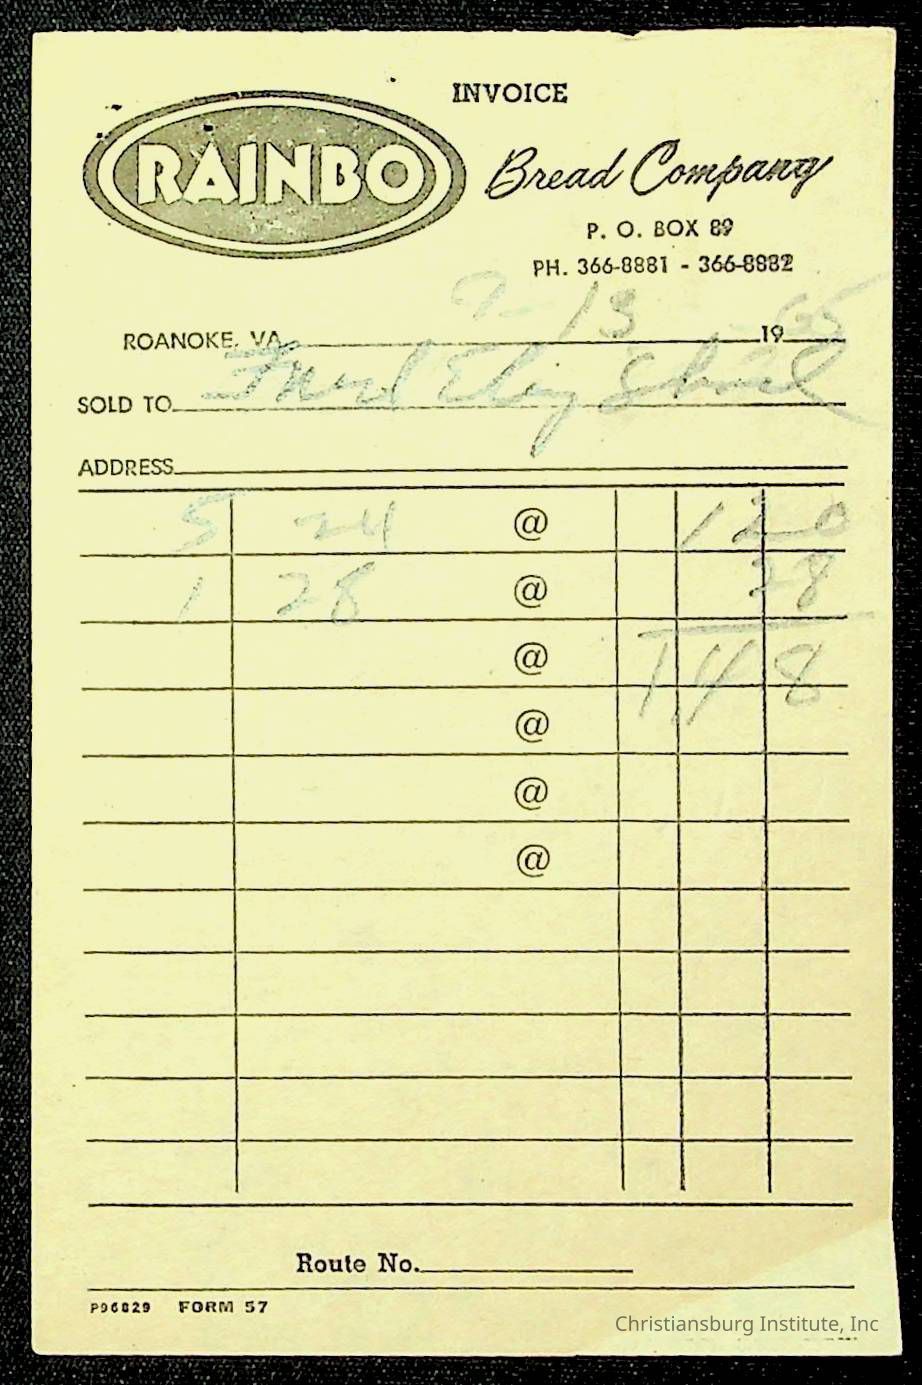 INVOICE
RAINBO
Bread Company
P. O. BOX 89
PH. 366-8881 - 366-8882
9-13
ROANOKE, VA. 19 65
SOLD TO
ADDRESS
5 24 @ 1 20
1 28 @ 28
@ 1 48
@
@
@
Route No.
P96829 FORM 57
Christiansburg Institute, Inc